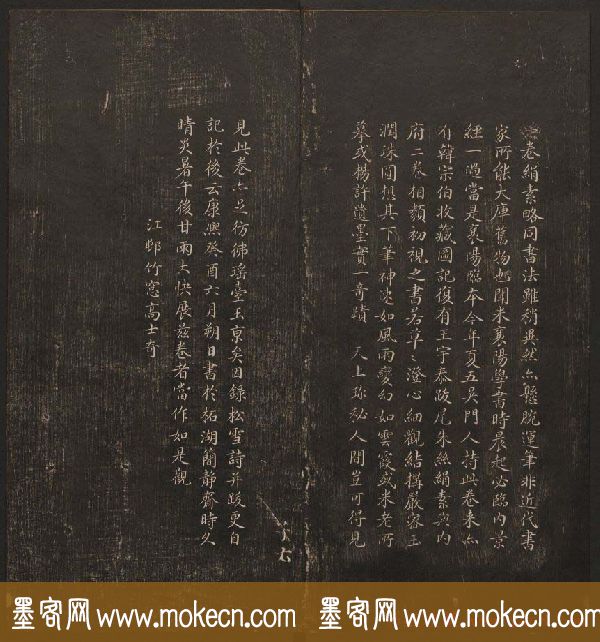 卷絹素略同書法雖稍異然亦盤腕運筆非近代書
家所能大庫舊物也聞米襄陽學書時晨起必臨内景
經一過當是襄陽臨本今年夏五吳門人持此卷来亦
有韓宗伯收藏圖記復有王宇泰跋尾朱絲絹素與内
府二卷相類初視之書若草々澄心細觀結構嚴密玉
潤珠圓想其下筆神速如風雨變幻如雲霞或米老所
摹或楊許遺墨實一奇蹟 天上珍秘人間豈可得見
見此卷亦足彷彿瑶臺玉京矣因錄松雪詩并跋更自
記於後云康熙癸酉六月朔日書於柘湖簡靜齋時久
晴炎暑午後甘雨大快展兹卷者當作如是觀
江邨竹窓高士奇
墨客网 www.mokecn.com 墨客网 www.mokecn.com